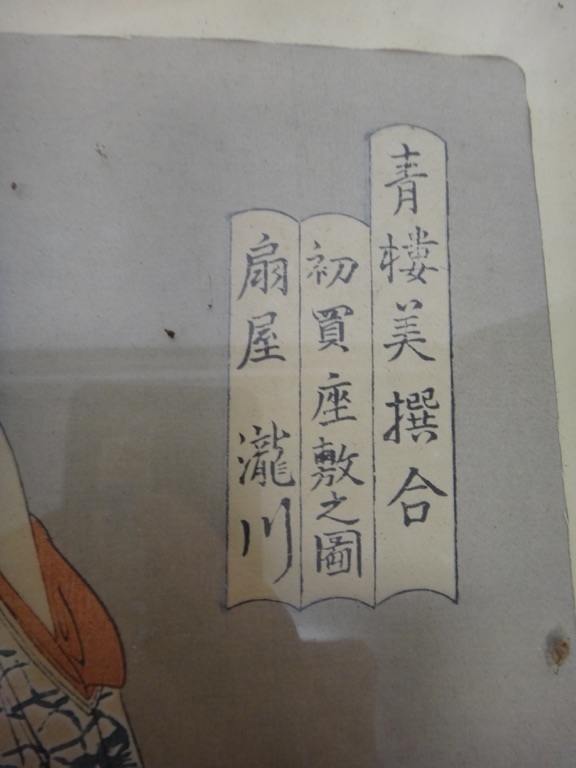 青樓美撰合
初買座敷之圖
扇屋 瀧川